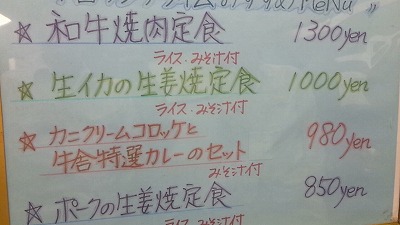 ☆ 和牛焼肉定食 1300yen
ライス・みそ汁付
☆ 生イカの生姜焼定食 1000yen
ライス・みそ汁付
☆ カニクリームコロッケと 980yen
牛舎特選カレーのセット
みそ汁付
☆ ポークの生姜焼定食 850yen
ライス・みそ汁付